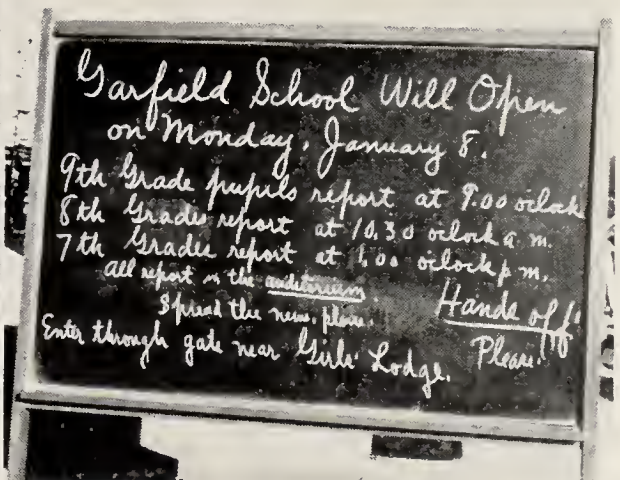 Garfield School Will Open
on Monday, January 8.
9th Grade pupils report at 9.00 oclock
8th Grades report at 10.30 oclock a.m.
7th Grades report at 1.00 oclock p.m.
All report in the auditorium.
Spread the news, please.
Hands off!
Please!
Enter through gate near Girls' Lodge.